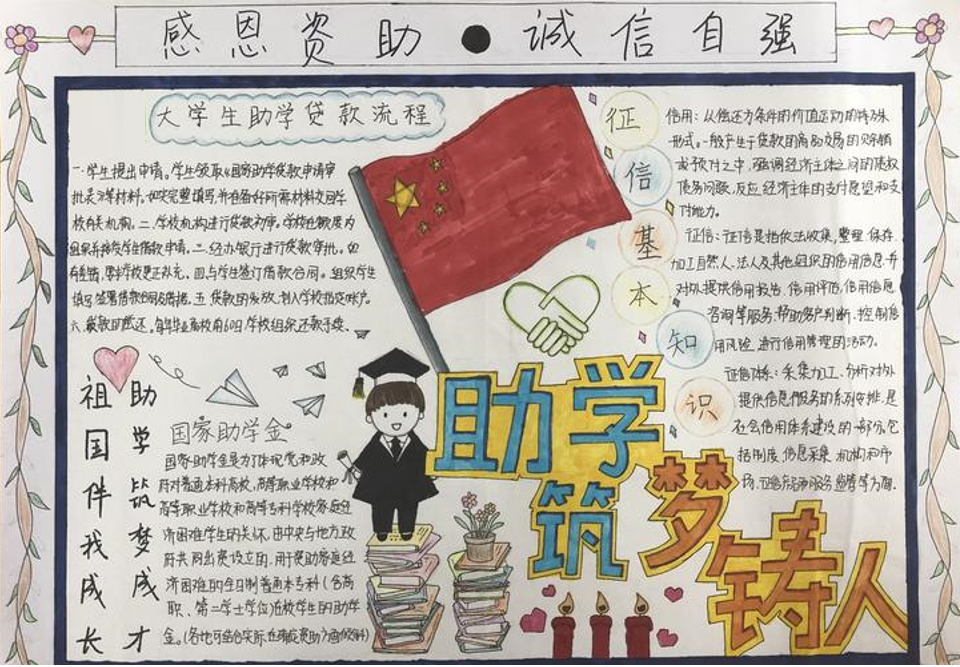 感恩资助●诚信自强
大学生助学贷款流程
一.学生提出申请。学生领取《国家助学贷款申请审
批表》等材料，如实完整填写，并准备好所需材料交回学
校有关机构。二.学校机构进行贷款初审。学校在额度内
组织并接受学生借款申请。三.经办银行进行贷款审批。如
四.与学生签订借款合同。组织学生
填写、签署借款合同及借据。五.贷款的发放，划入学校指定账户。
学校组织还款手续。
征信基本知识
信用：从偿还方条件的价值运动的特殊
形式。一般产生于贷款的商品交易的
或预付之中，强调经济主体之间的债权
债务问题，反应经济主体的支付愿望和支
付能力。
征信：征信是指依法收集、整理、保存、
加工自然人、法人及其他组织的信用信息，并
对外提供信用报告、信用评估、信用信息
咨询等服务，帮助客户判断、控制信
用风险，进行信用管理的活动。
征信体系：采集加工、分析对外
提供信息服务的系列安排，是
社会信用体系建设的一部分，包
括制度、信息采集、机构和市
场、征信产品和服务、监管等方面。
祖国伴我成长
助学筑梦成才
国家助学金
国家助学金是为了体现党和政
府对普通本科高校、高等职业学校和
高等职业学校和高等专科学校家庭经
济困难学生的关怀，由中央与地方政
府共同出资设立的，用于资助家庭经
济困难的全日制普通本专科(含高
职、第二学士学位)在校学生的助学
金。
助学
筑梦
铸人